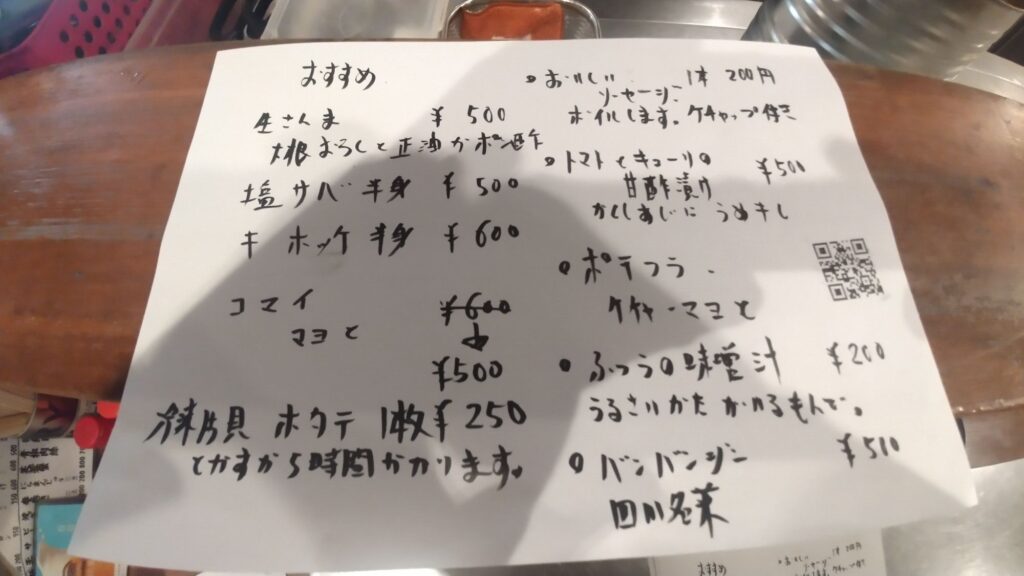 おすすめ
生さんま ¥500
大根おろしと正油かポン酢
塩サバ半身 ¥500
キホッケ半身 ¥600
コマイ ¥600
マヨと
¥500
ホタテ 1枚¥250
とかすから5時間かかります。
・おいしい 1本200円
ソーセージ
ボイルします。ケチャップ付き
・トマトとキューリの ¥500
甘酢漬け
かくしあじに うめキし
・ポテフラ
ケチャーマヨと
・ふつうの味噌汁 ¥200
うるさいかた かいるもんで。
・バンバンジー ¥510
四川名菜
おすすめ